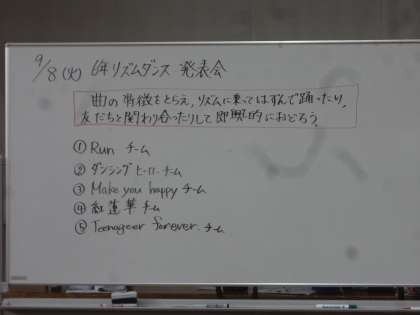 9/8(火) 6年リズムダンス 発表会
曲の特徴をとらえ、リズムに乗ってはずんで踊ったり、
友だちと関わり合ったりして即興的におどろう。
① Run チーム
② ダンシングヒーロー チーム
③ Make you happy チーム
④ 紅蓮華 チーム
⑤ Teenageer forever チーム